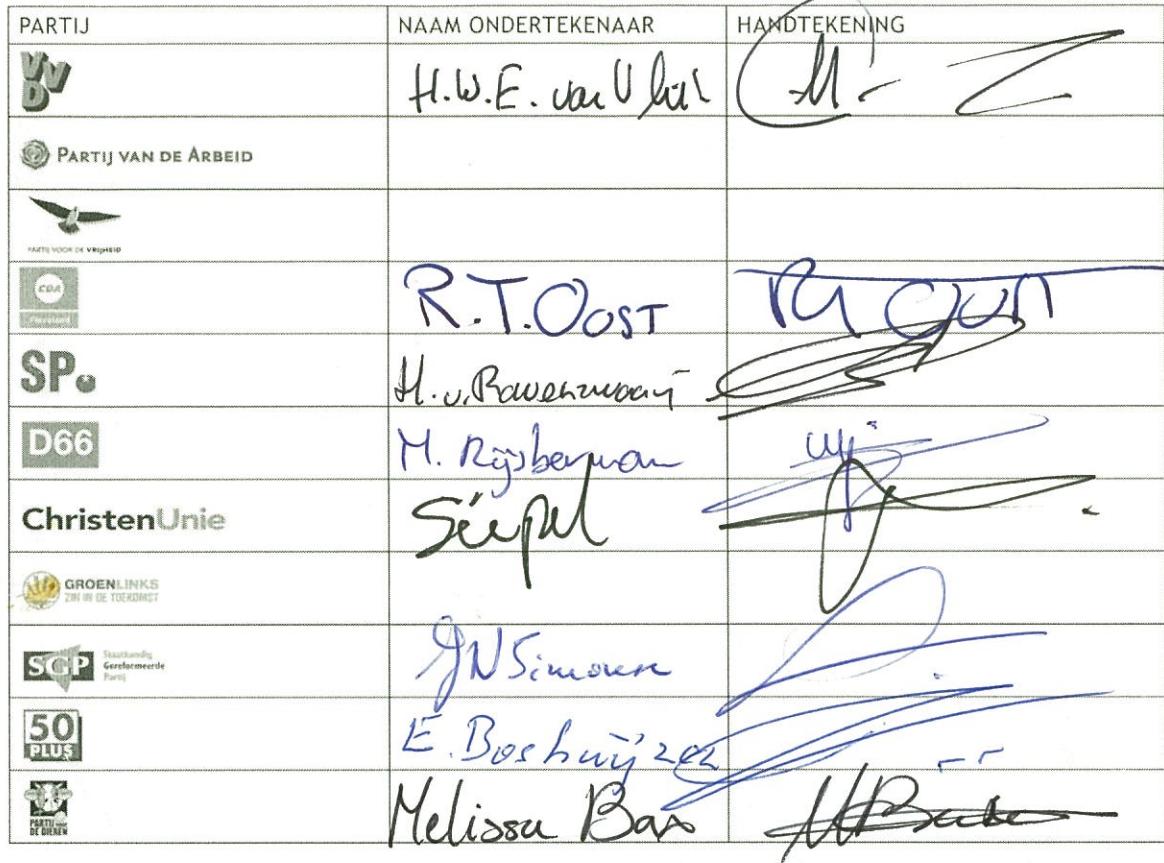 PARTIJ NAAM ONDERTEKENAAR HANDTEKENING
VVD H.W.E. van
PARTIJ VAN DE ARBEID
PARTIJ VOOR DE VRIJHEID
CDA R.T. OOST
Flevoland
SP. H. v. Ravenzwaaij
D66 M. Rijsberman
ChristenUnie
GROENLINKS
ZIN IN DE TOEKOMST
SGP Staatkundig Gereformeerde Partij JN Simonse
50 PLUS E. Boshuijzen
PARTIJ VOOR DE DIEREN Melissa Bax